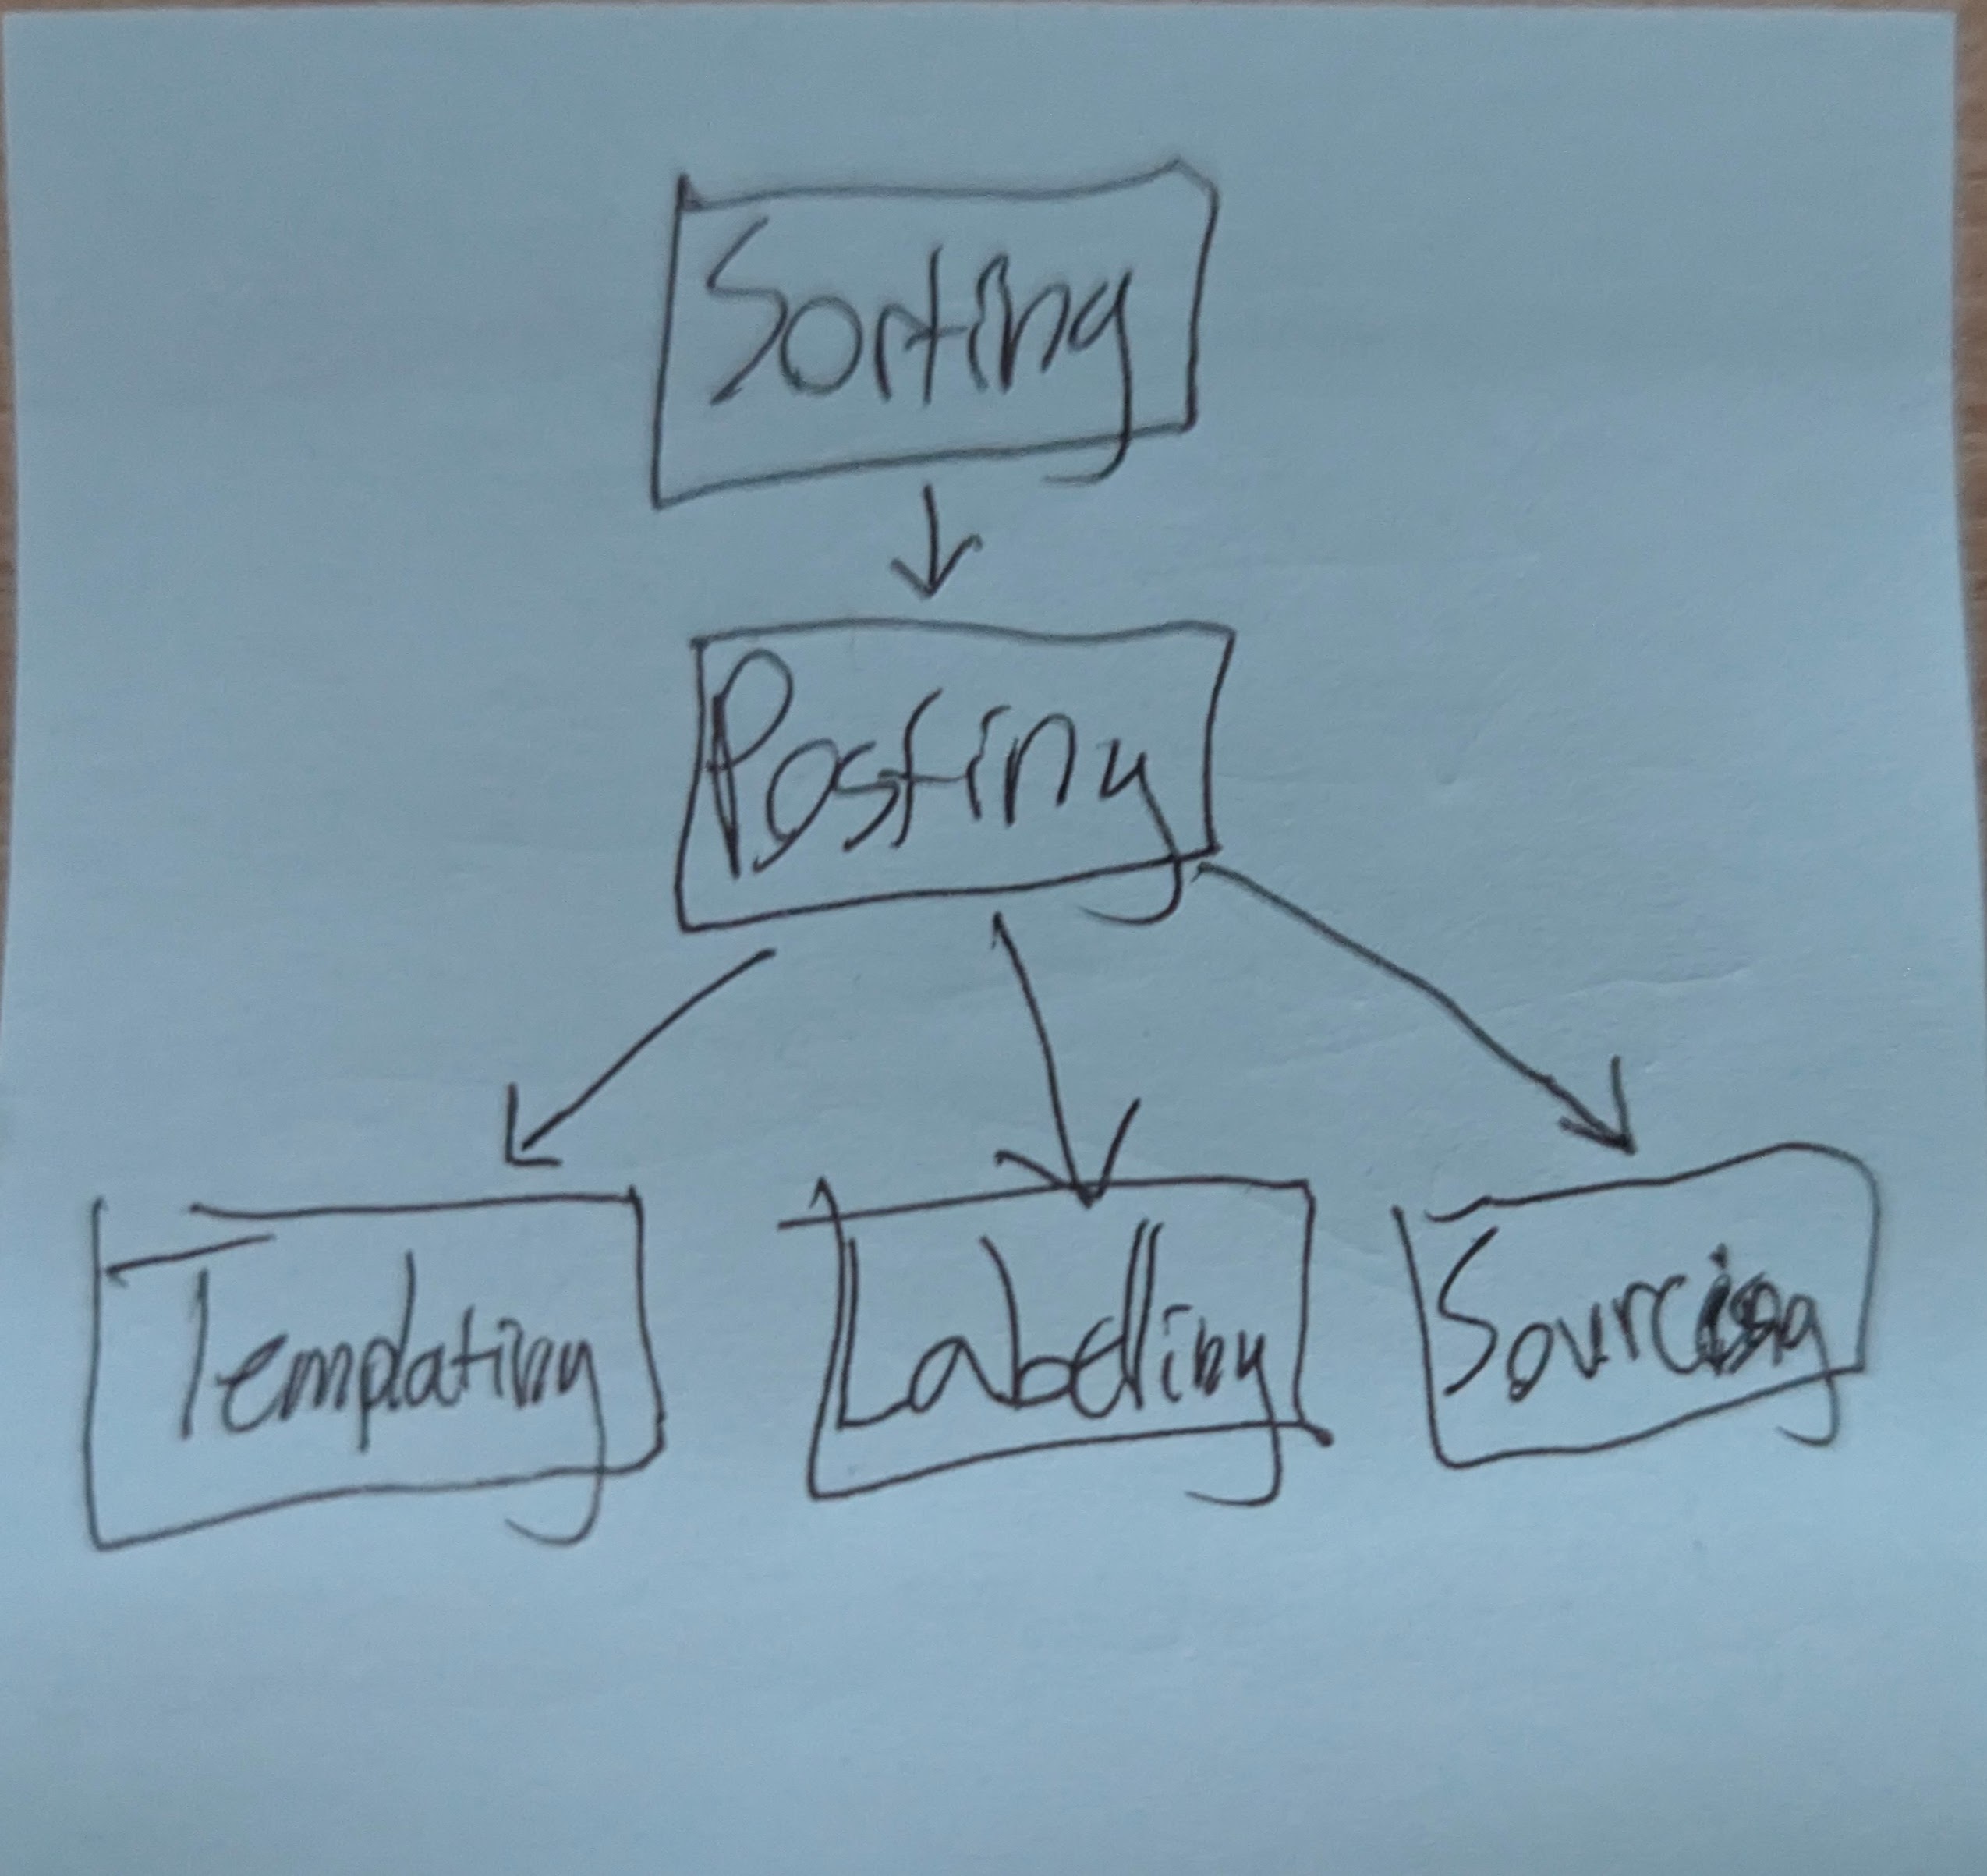 Sorting
Posting
Templating
Labelling
Sourcing